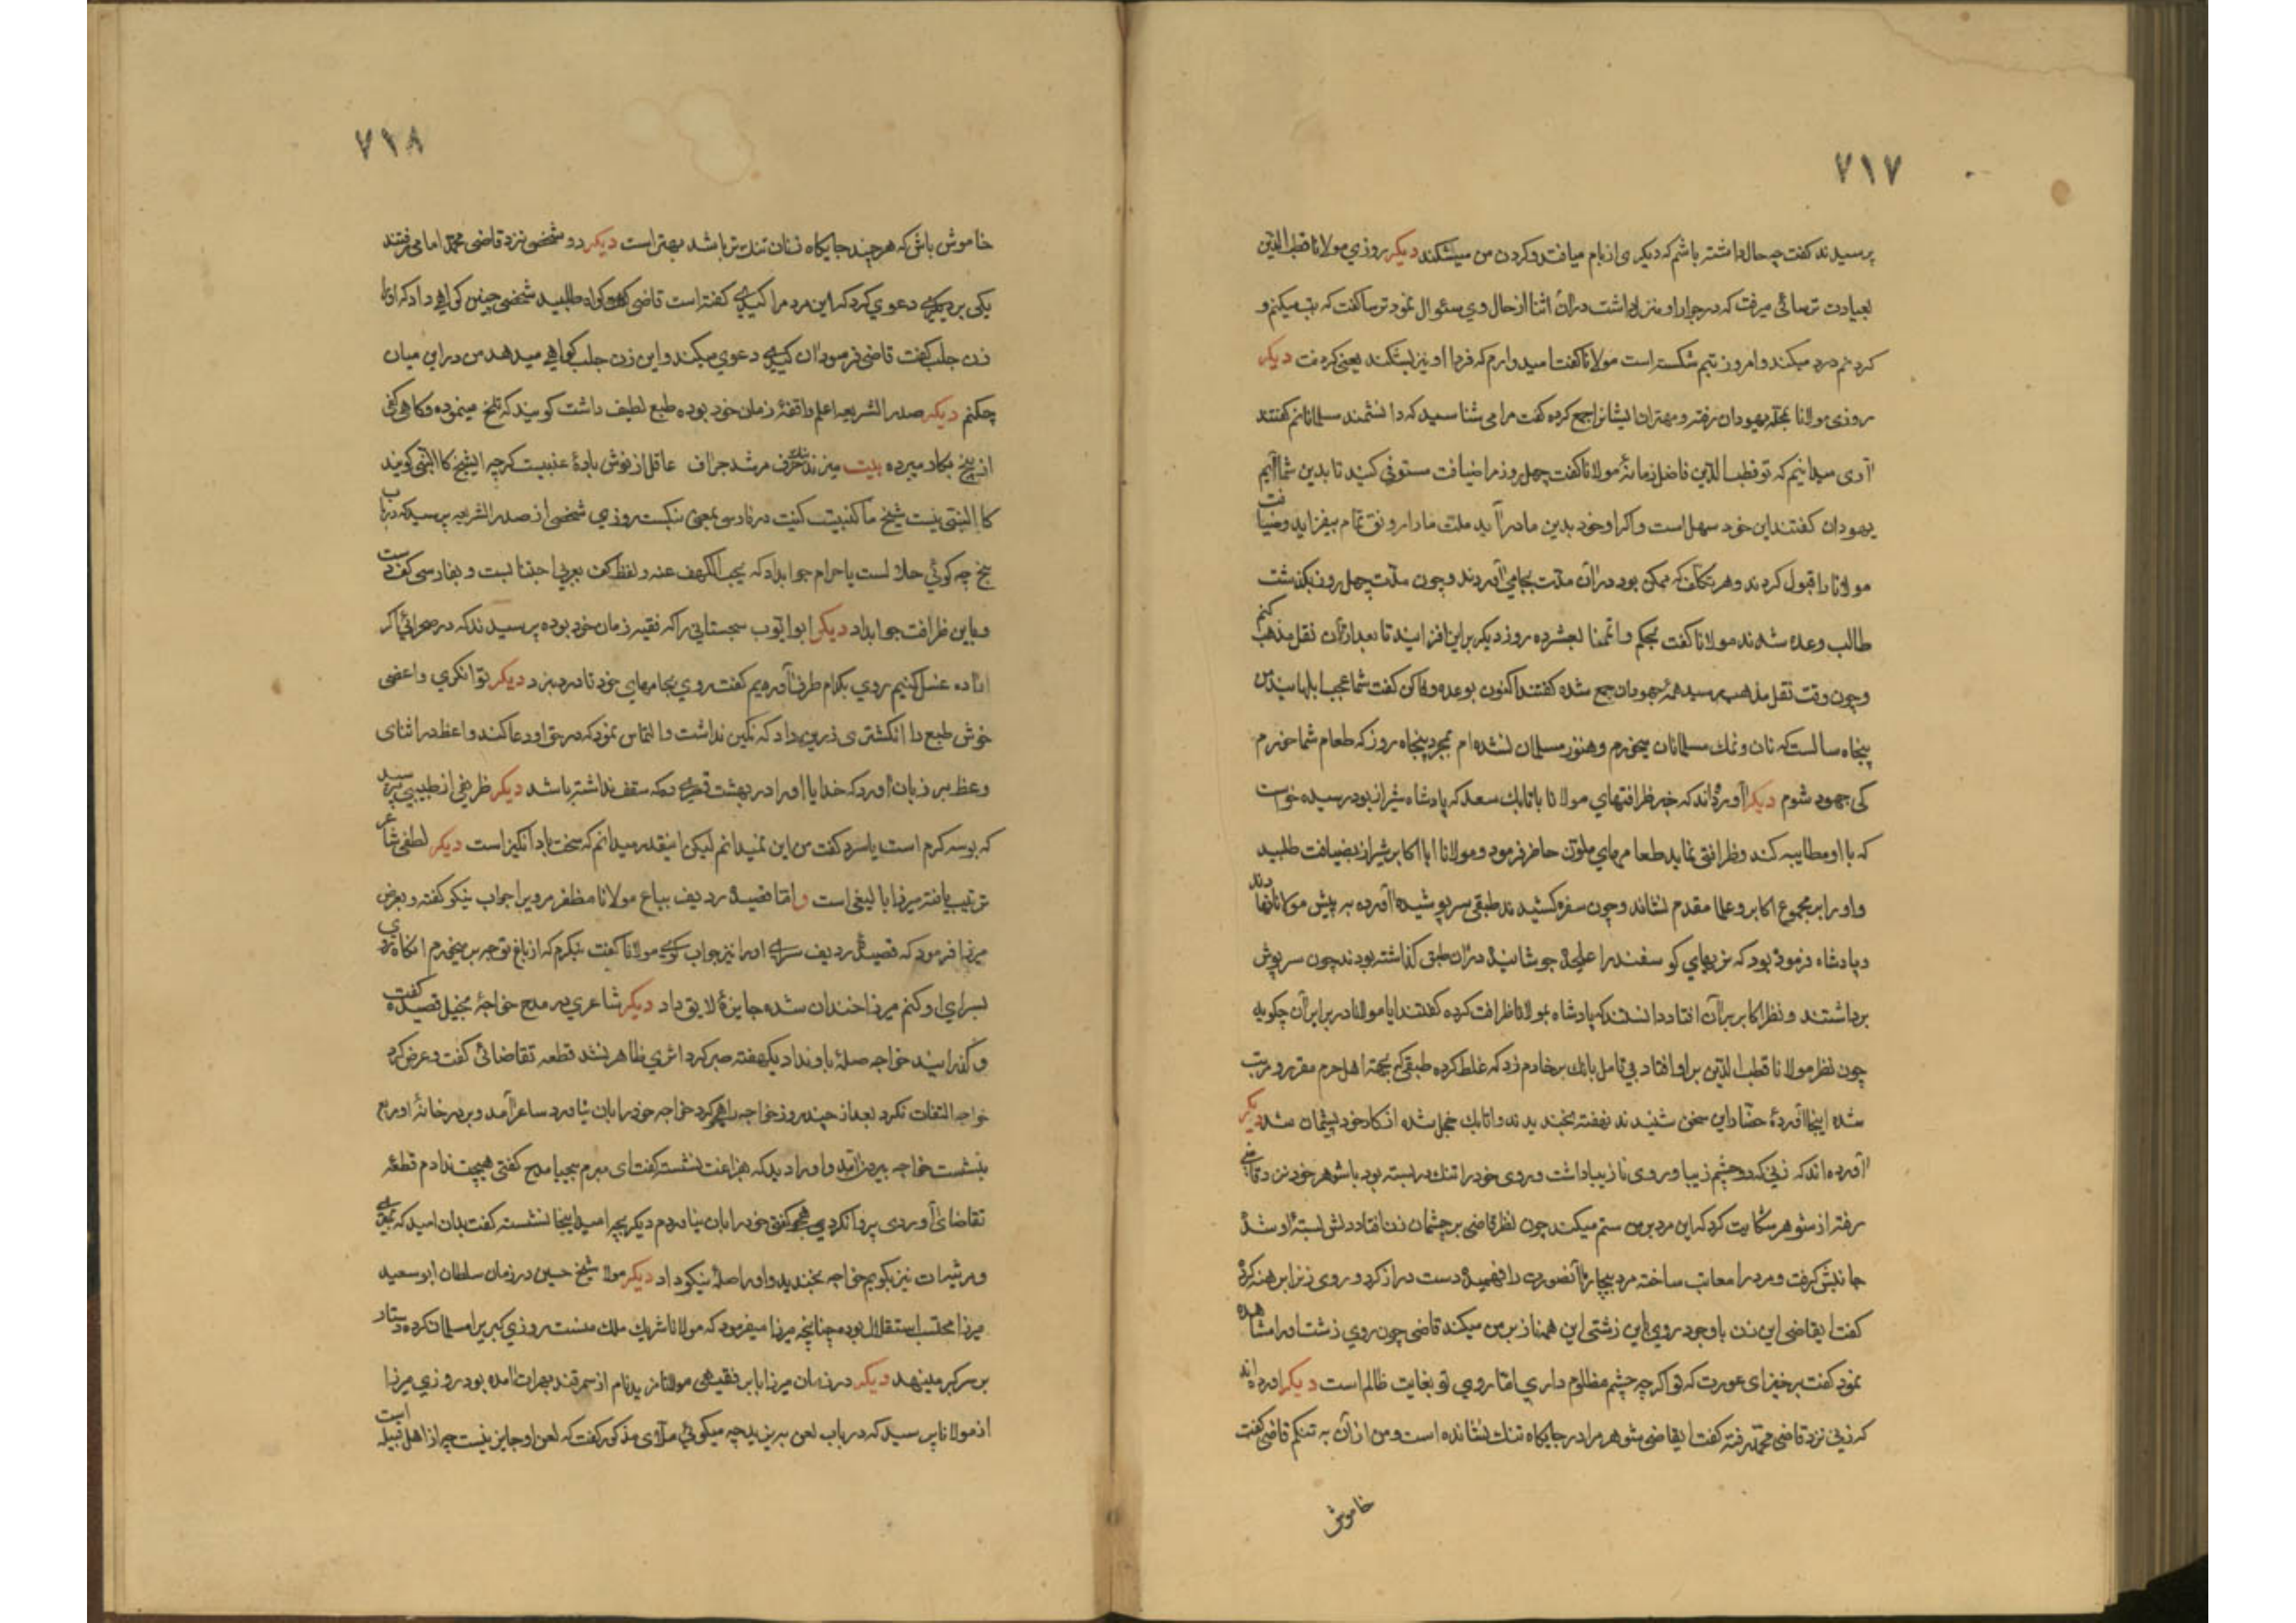 ٧١٧
پرسیدند کفت چه حال داشته باشم که دیکری از بام میافتد و کردن من میشکند دیکر روزی مولانا قطب الدین
بعیادت ترسائی میرفت که در جوار او منزل داشت در ان اثنا از حال وی سئوال نمود ترسا کفت که تب میکنم و
کردنم درد میکند و امروز تبم شکسته است مولانا کفت امیدوارم که فردا او نیز بشکند یعنی کردنت دیکر
روزی مولانا بمحله یهودان رفته و مهتران ایشانرا جمع کرده کفت مرا می شناسید که دانشمند مسلمانانم کفتند
آری میدانیم که تو قطب الدین فاضل زمانهٔ مولانا کفت چهل روز مرا ضیافت مستوفی کنید تا بدین شما آیم
یهودان کفتند این خود سهل است و اکر او خود بدین ما در آید ملت ما را رونق تمام بیفزاید و ضیافت
مولانا را قبول کردند و هر تکلف که ممکن بود در آن مدت بجای آوردند و چون مدت چهل روز بکذشت
طالب وعده شدند مولانا کفت بحکم و اتممنا بعشر ده روز دیکر براین افزایند تا بعد از آن نقل مذهب کنم
و چون وقت نقل مذهب رسید همهٔ جهودان جمع شده کفتند اکنون بوعده وفا کن کفت شما عجب ابلهانید من
پنجاه سالست که نان و نمک مسلمانان میخورم و هنوز مسلمان نشده ام بمجرد پنجاه روز که طعام شما خورم
کی جهود شوم دیکر آورده‌اند که خبر ظرافتهای مولانا باتابک سعد که پادشاه شیراز بود رسیده خواست
که با او مطایبه کند و ظرافتی نماید طعامهای ملون حاضر فرمود و مولانا را با اکابر شیراز بضیافت طلبید
و او را بر مجموع اکابر و علما مقدم نشاند و چون سفره کشیدند طبقی سرپوشیده آورده به پیش مولانا نهادند
و پادشاه فرموده بود که نرهای کوسفند را علیحده جوشانیده در ان طبق کذاشته بودند چون سرپوش
برداشتند و نظر اکابر بر آن افتاد دانستند که پادشاه بمولانا ظرافت کرده کفتند ایا مولانا در برابر آن چکوید
چون نظر مولانا قطب الدین بر او افتاد بی تامل بانک بر خادم زد که غلط کرده طبقی که بجهته اهل حرم مقرر و مرتب
شده اینجا آوردهٔ حضار این سخن شنیدند نهفته بخندیدند و اتابک خجل شده از کار خود پشیمان شد دیکر
آورده اند که زنی که دو چشم زیبا و روی نازیبا داشت و روی خود را تنک در بسته بود با شوهر خود نزد قاضی
رفته از شوهر شکایت کرد که این مرد بر من ستم میکند چون نظر قاضی بر چشمان زن افتاد دلش بسته او شده
جانبش کرفت و مرد را معاتب ساخته مرد بیچاره آنصورت را فهمیده دست دراز کرد و روی زنرا برهنه کرده
کفت ایقاضی این زن با وجود روی باین زشتی این همه ناز بر من میکند قاضی چون روی زشت او را مشاهده
نمود کفت برخیز ای عورت که تو اکر چه چشم مظلوم داری اما روی تو بغایت ظالم است دیکر آورده اند
که زنی نزد قاضی محمد رفته کفت ایقاضی شوهر مرا در جایکاه تنک نشانده است و من از آن به تنکم قاضی کفت
خاموش
٧١٨
خاموش باش که هر چند جایکاه زنان تنک تر باشد بهتر است دیکر دو شخص نزد قاضی محمد امامی رفتند
یکی بر دیکری دعوی کرد که این مرد مرا کیدی کفته است قاضی کواه طلبید شخصی چنین کواهی داد که او را
زن جلب کفت قاضی فرمود ان کیدی دعوی میکند و این زن جلب کواهی میدهد من در این میان
چکنم دیکر صدر الشریعه اعلم و افقهٔ زمان خود بوده طبع لطیف داشت کویند که تلخ مینموده و کاهی کفی
از بنج بکار میبرده بیت میزند حرف مرشد جراف عاقل از نوش بادهٔ عنبیت کرچه الشیخ کالنبی کویند
کالنبی نیست شیخ ما کنبیست کنب در فارسی بمعنی بنکست روزی شخصی از صدر الشریعه پرسید که در باب
بنج چه کوئی حلالست یا حرام جوابداد که یجب الکف عنه و لفظ کف بعربی اجتنابست و بفارسی کف دست
و باین ظرافت جوابداد دیکر ابو ایوب سجستانی را که فقیه زمان خود بوده پرسیدند که در صحرائی اکر
افتاده غسل کنیم روی بکدام طرف آوریم کفت روی بجامهای خود تا دزد نبرد دیکر توانکری واعظی
خوش طبع را انکشتری زرین داد که نکین نداشت و التماس نمود که در حق او دعا کند واعظ در اثنای
وعظ بر زبان اورد که خدایا او را در بهشت قصری ده که سقف نداشته باشد دیکر ظریفی از طبیبی پرسید
که بوسه کرم است یا سرد کفت من این نمیدانم لیکن اینقدر میدانم که سخت باد انکیز است دیکر لطفی شاعر
ترتیب یافته میرزا بایسنغر است و اما قصیدهٔ ردیف بباغ مولانا مظفر مرویرا جواب نیکو کفته و بعرض
میرزا فرمود که قصیدهٔ ردیف سرای او را نیز جواب کوی مولانا کفت بنکرم که از باغ تو چه بر میخورم انکاه روی
بسرای او کنم میرزا خندان شده جایزهٔ لایق داد دیکر شاعری در مدح خواجهٔ بخیل قصیده کفت
و کذرانید خواجه صلهٔ باو نداد یکهفته صبر کرد اثری ظاهر نشد قطعه تقاضائی کفت و عرض کرد
خواجه التفات نکرد بعد از چند روز خواجه را هجو کرد خواجه خود را بان نیاورد شاعر آمد و بر در خانهٔ او مربع
بنشست خواجه بیرون آمد و او را دید که بفراغت نشسته کفت ای مبرم بیحیا مدح کفتی هیچت ندادم قطعه
تقاضائی آوردی پروا نکردم هجو کفتی خود را بان نیاوردم دیکر بچه امید اینجا نشسته کفت بدان امید که بمیری
و مرثیه‌ات نیز بکویم خواجه بخندید و او را صلهٔ نیکو داد دیکر مولانا شیخ حسین در زمان سلطان ابو سعید
میرزا محتسب باستقلال بوده چنانچه میرزا میفرمود که مولانا شریک ملک منست روزی کبریرا مسلمان کرده دستار
بر سر کبر مینهد دیکر در زمان میرزا بابر فقیهی مولانا مزید نام از سمرقند بهرات آمده بود روزی میرزا
از مولانا پرسید که در باب لعن یزید چه میکوئی ملای مذکور کفت که لعن او جایز نیست چه از اهل قبیله است